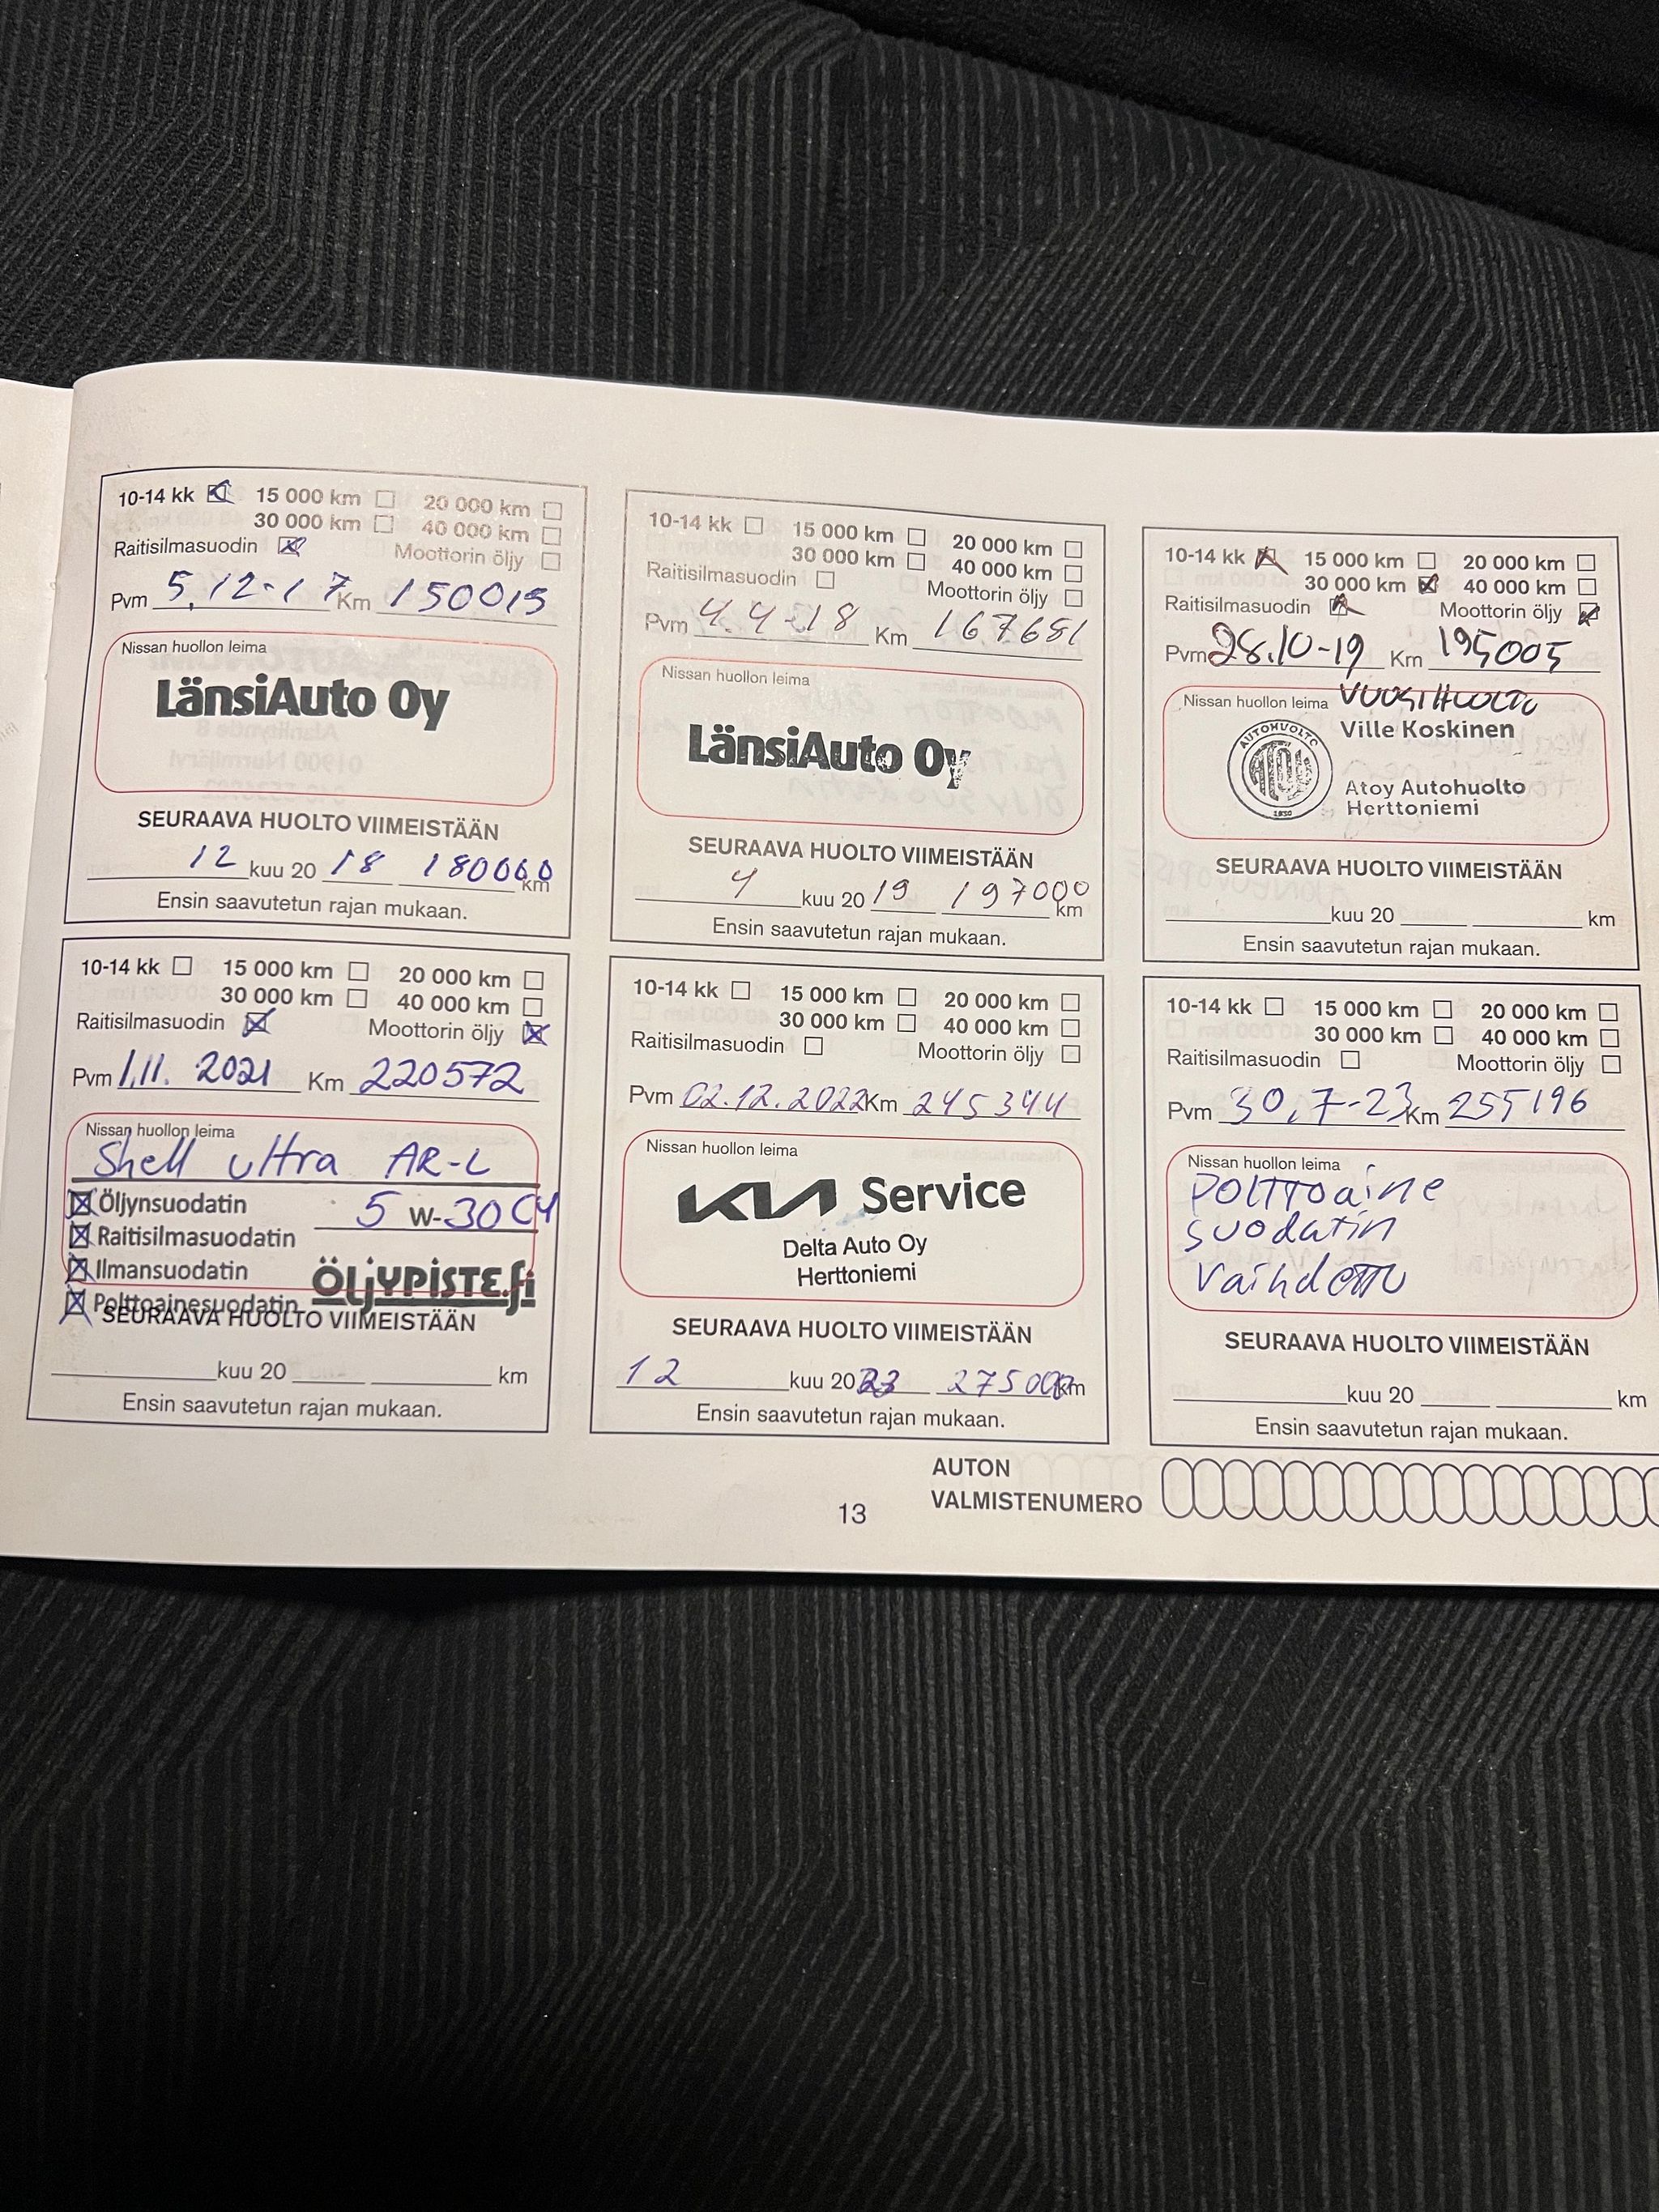 10-14 kk 15 000 km 20 000 km
30 000 km 40 000 km
Raitisilmasuodin Moottorin öljy
Pvm 5.12-17 Km 150015
Nissan huollon leima
LänsiAuto Oy
SEURAAVA HUOLTO VIIMEISTÄÄN
12 kuu 20 18 180000 km
Ensin saavutetun rajan mukaan.
10-14 kk 15 000 km 20 000 km
30 000 km 40 000 km
Raitisilmasuodin Moottorin öljy
Pvm 4.4-18 Km 167681
Nissan huollon leima
LänsiAuto Oy
SEURAAVA HUOLTO VIIMEISTÄÄN
4 kuu 20 19 197000 km
Ensin saavutetun rajan mukaan.
10-14 kk 15 000 km 20 000 km
30 000 km 40 000 km
Raitisilmasuodin Moottorin öljy
Pvm 28.10-19 Km 195005
Nissan huollon leima VUOSIHUOLTO
AUTOHUOLTO
ATOY
1930
Ville Koskinen
Atoy Autohuolto
Herttoniemi
SEURAAVA HUOLTO VIIMEISTÄÄN
kuu 20 km
Ensin saavutetun rajan mukaan.
10-14 kk 15 000 km 20 000 km
30 000 km 40 000 km
Raitisilmasuodin Moottorin öljy
Pvm 1.11. 2021 Km 220572
Nissan huollon leima
Shell ultra AR-L
Öljynsuodatin 5 W-30 C4
Raitisilmasuodatin
Ilmansuodatin
Polttoainesuodatin ÖLJYPISTE.fi
SEURAAVA HUOLTO VIIMEISTÄÄN
kuu 20 km
Ensin saavutetun rajan mukaan.
10-14 kk 15 000 km 20 000 km
30 000 km 40 000 km
Raitisilmasuodin Moottorin öljy
Pvm 02.12.2022 Km 245344
Nissan huollon leima
KIA Service
Delta Auto Oy
Herttoniemi
SEURAAVA HUOLTO VIIMEISTÄÄN
12 kuu 20 23 275000 km
Ensin saavutetun rajan mukaan.
10-14 kk 15 000 km 20 000 km
30 000 km 40 000 km
Raitisilmasuodin Moottorin öljy
Pvm 30.7-23 Km 255196
Nissan huollon leima
Polttoaine
suodatin
vaihdettu
SEURAAVA HUOLTO VIIMEISTÄÄN
kuu 20 km
Ensin saavutetun rajan mukaan.
13
AUTON
VALMISTENUMERO